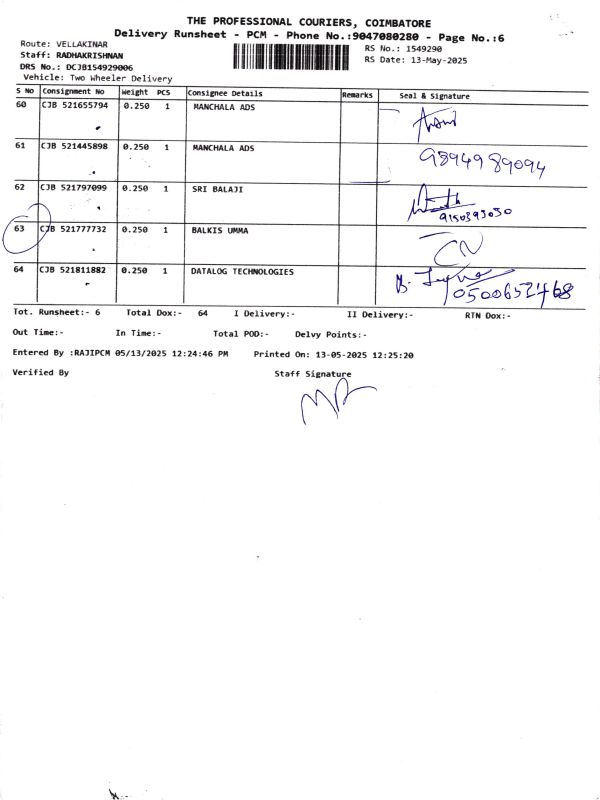 THE PROFESSIONAL COURIERS, COIMBATORE
Delivery Runsheet - PCM - Phone No.:9047080280 - Page No.:6
Route: VELLAKINAR
RS No.: 1549290
Staff: RADHAKRISHNAN
RS Date: 13-May-2025
DRS No.: DCJB154929006
Vehicle: Two Wheeler Delivery
S No Consignment No Weight PCS Consignee Details Remarks Seal & Signature
60 CJB 521655794 0.250 1 MANCHALA ADS
61 CJB 521445898 0.250 1 MANCHALA ADS 9894989094
62 CJB 521797099 0.250 1 SRI BALAJI
9150393030
63 CJB 521777732 0.250 1 BALKIS UMMA CN
64 CJB 521811882 0.250 1 DATALOG TECHNOLOGIES
Tot. Runsheet:- 6 Total Dox:- 64 I Delivery:- II Delivery:- RTN Dox:-
Out Time:- In Time:- Total POD:- Delvy Points:-
Entered By :RAJIPCM 05/13/2025 12:24:46 PM Printed On: 13-05-2025 12:25:20
Verified By Staff Signature